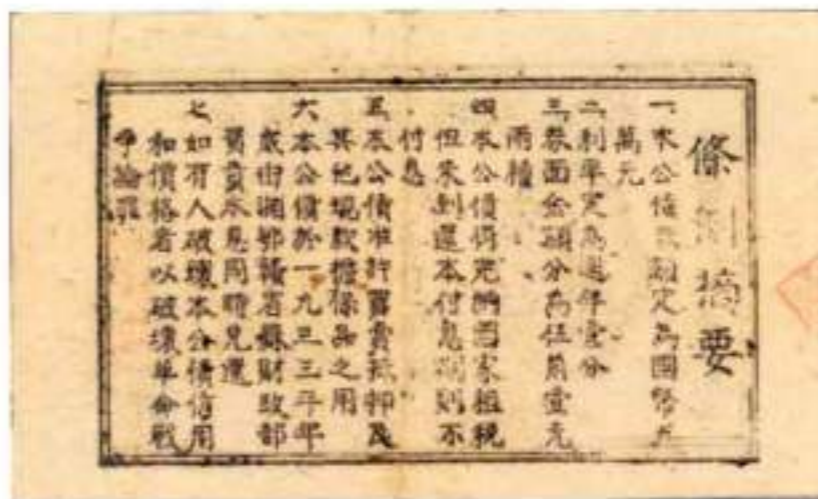 條例摘要
一、本公債額定為國幣五
萬元
二、利率定為週年壹分
三、券面金額分為伍角壹元
兩種
四、本公債得完納國家租稅
但未到還本付息期則不
付息
五、本公債准許買賣抵押及
其他現款擔保品之用
六、本公債於一九三三年
底由湘鄂贛省蘇財政部
本息同時兌還
七、如有人破壞本公債信用
和價格者以破壞革命戰
爭論罪